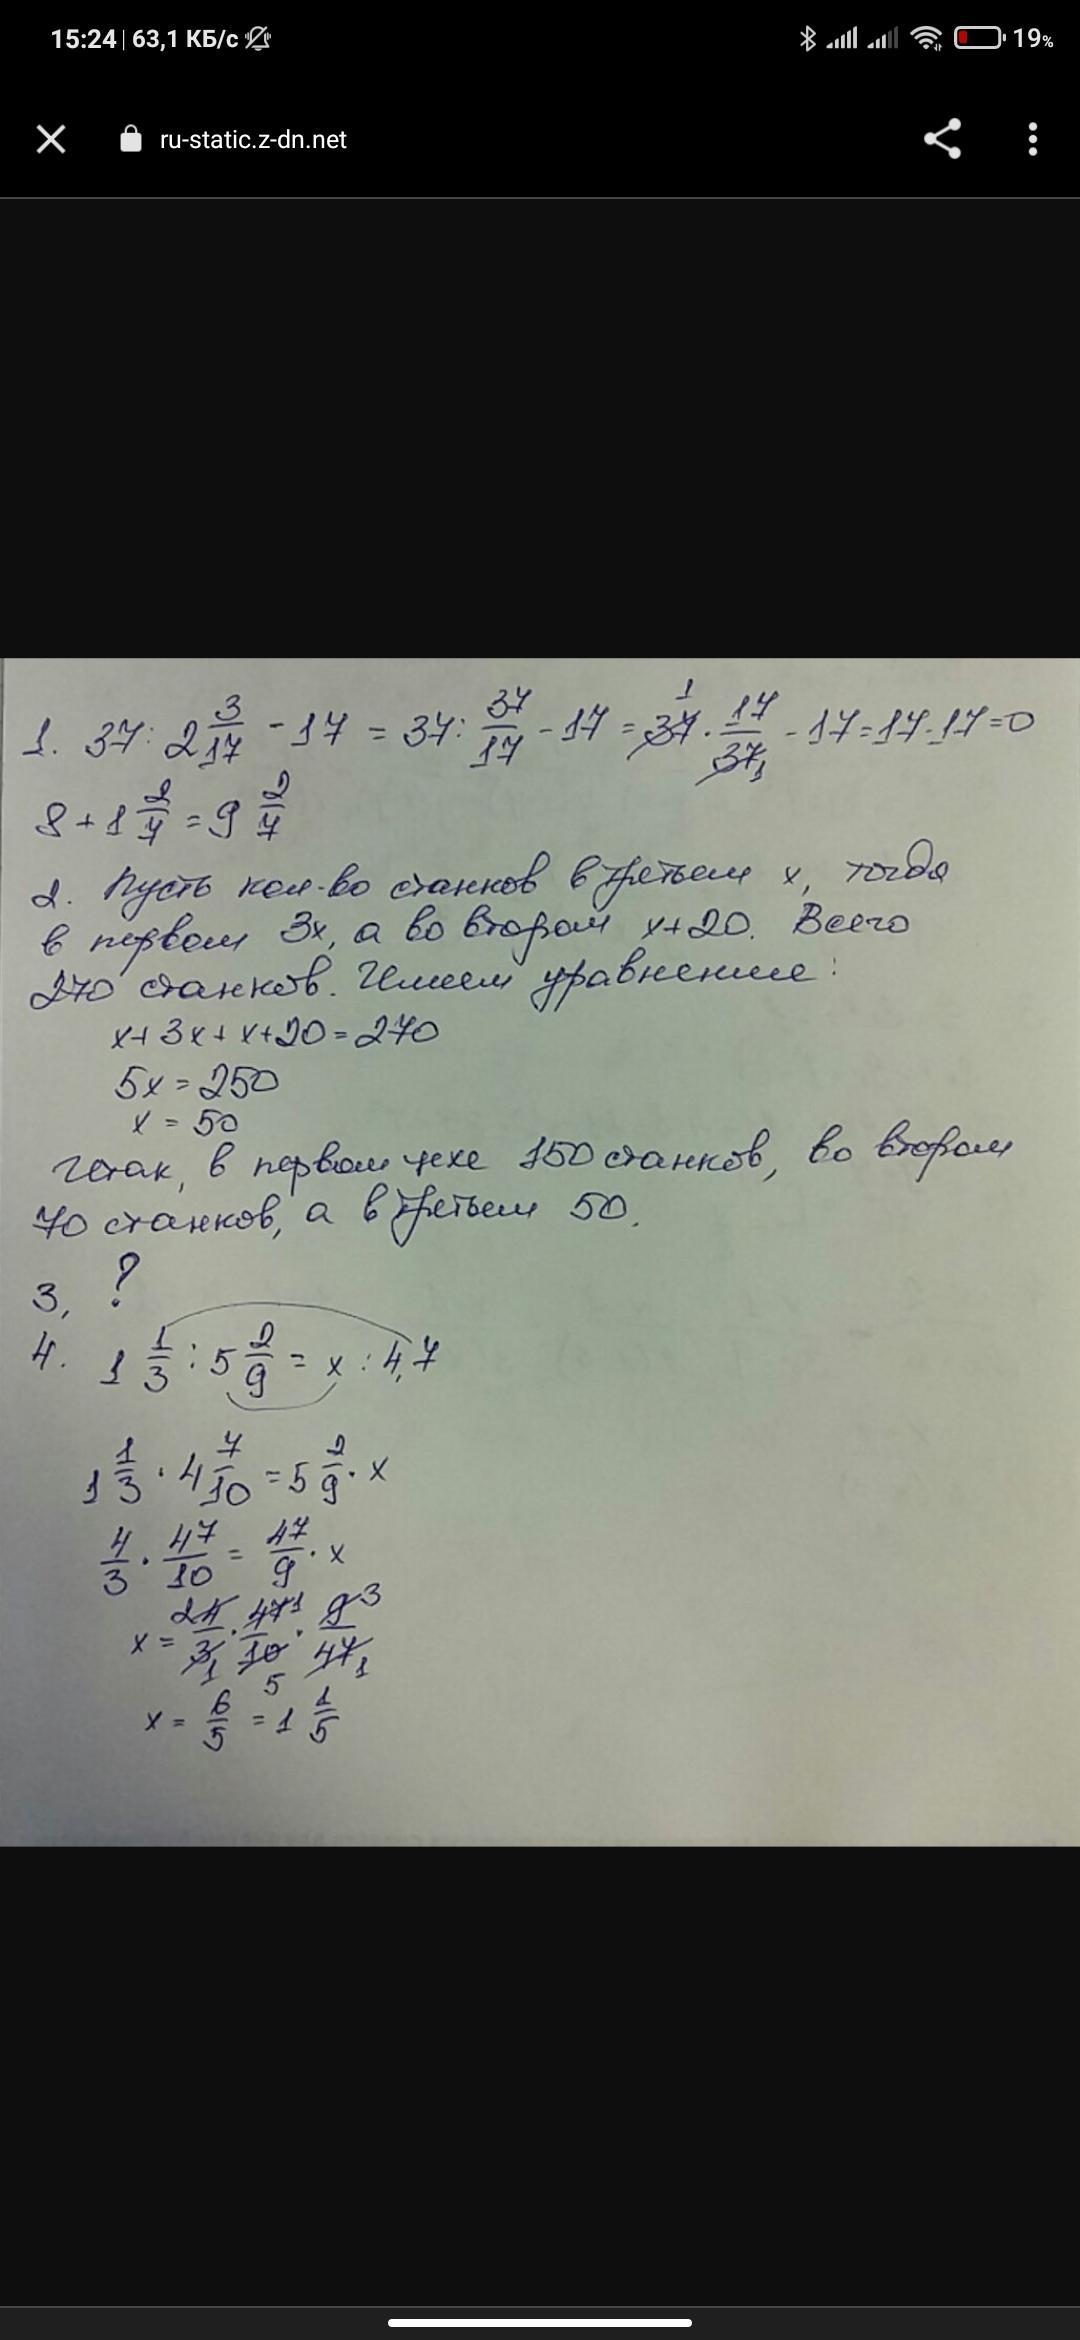 15:24 | 63,1 КБ/с
19%
ru-static.z-dn.net
1. 37 : 2 3/17 - 17 = 37 : 37/17 - 17 = 37 1 · 17/37 1 - 17 = 17 - 17 = 0
8 + 1 2/7 = 9 2/7
2. Пусть кол-во станков в третьем x, тогда
в первом 3x, а во втором x+20. Всего
270 станков. Имеем уравнение:
x + 3x + x + 20 = 270
5x = 250
x = 50
Итак, в первом цехе 150 станков, во втором
70 станков, а в третьем 50.
3, ?
4. 1 1/3 : 5 2/9 = x : 4,7
1 1/3 · 4 7/10 = 5 2/9 · x
4/3 · 47/10 = 47/9 · x
x = 2 4/3 1 · 47 1/10 5 · 9 3/47 1
x = 6/5 = 1 1/5